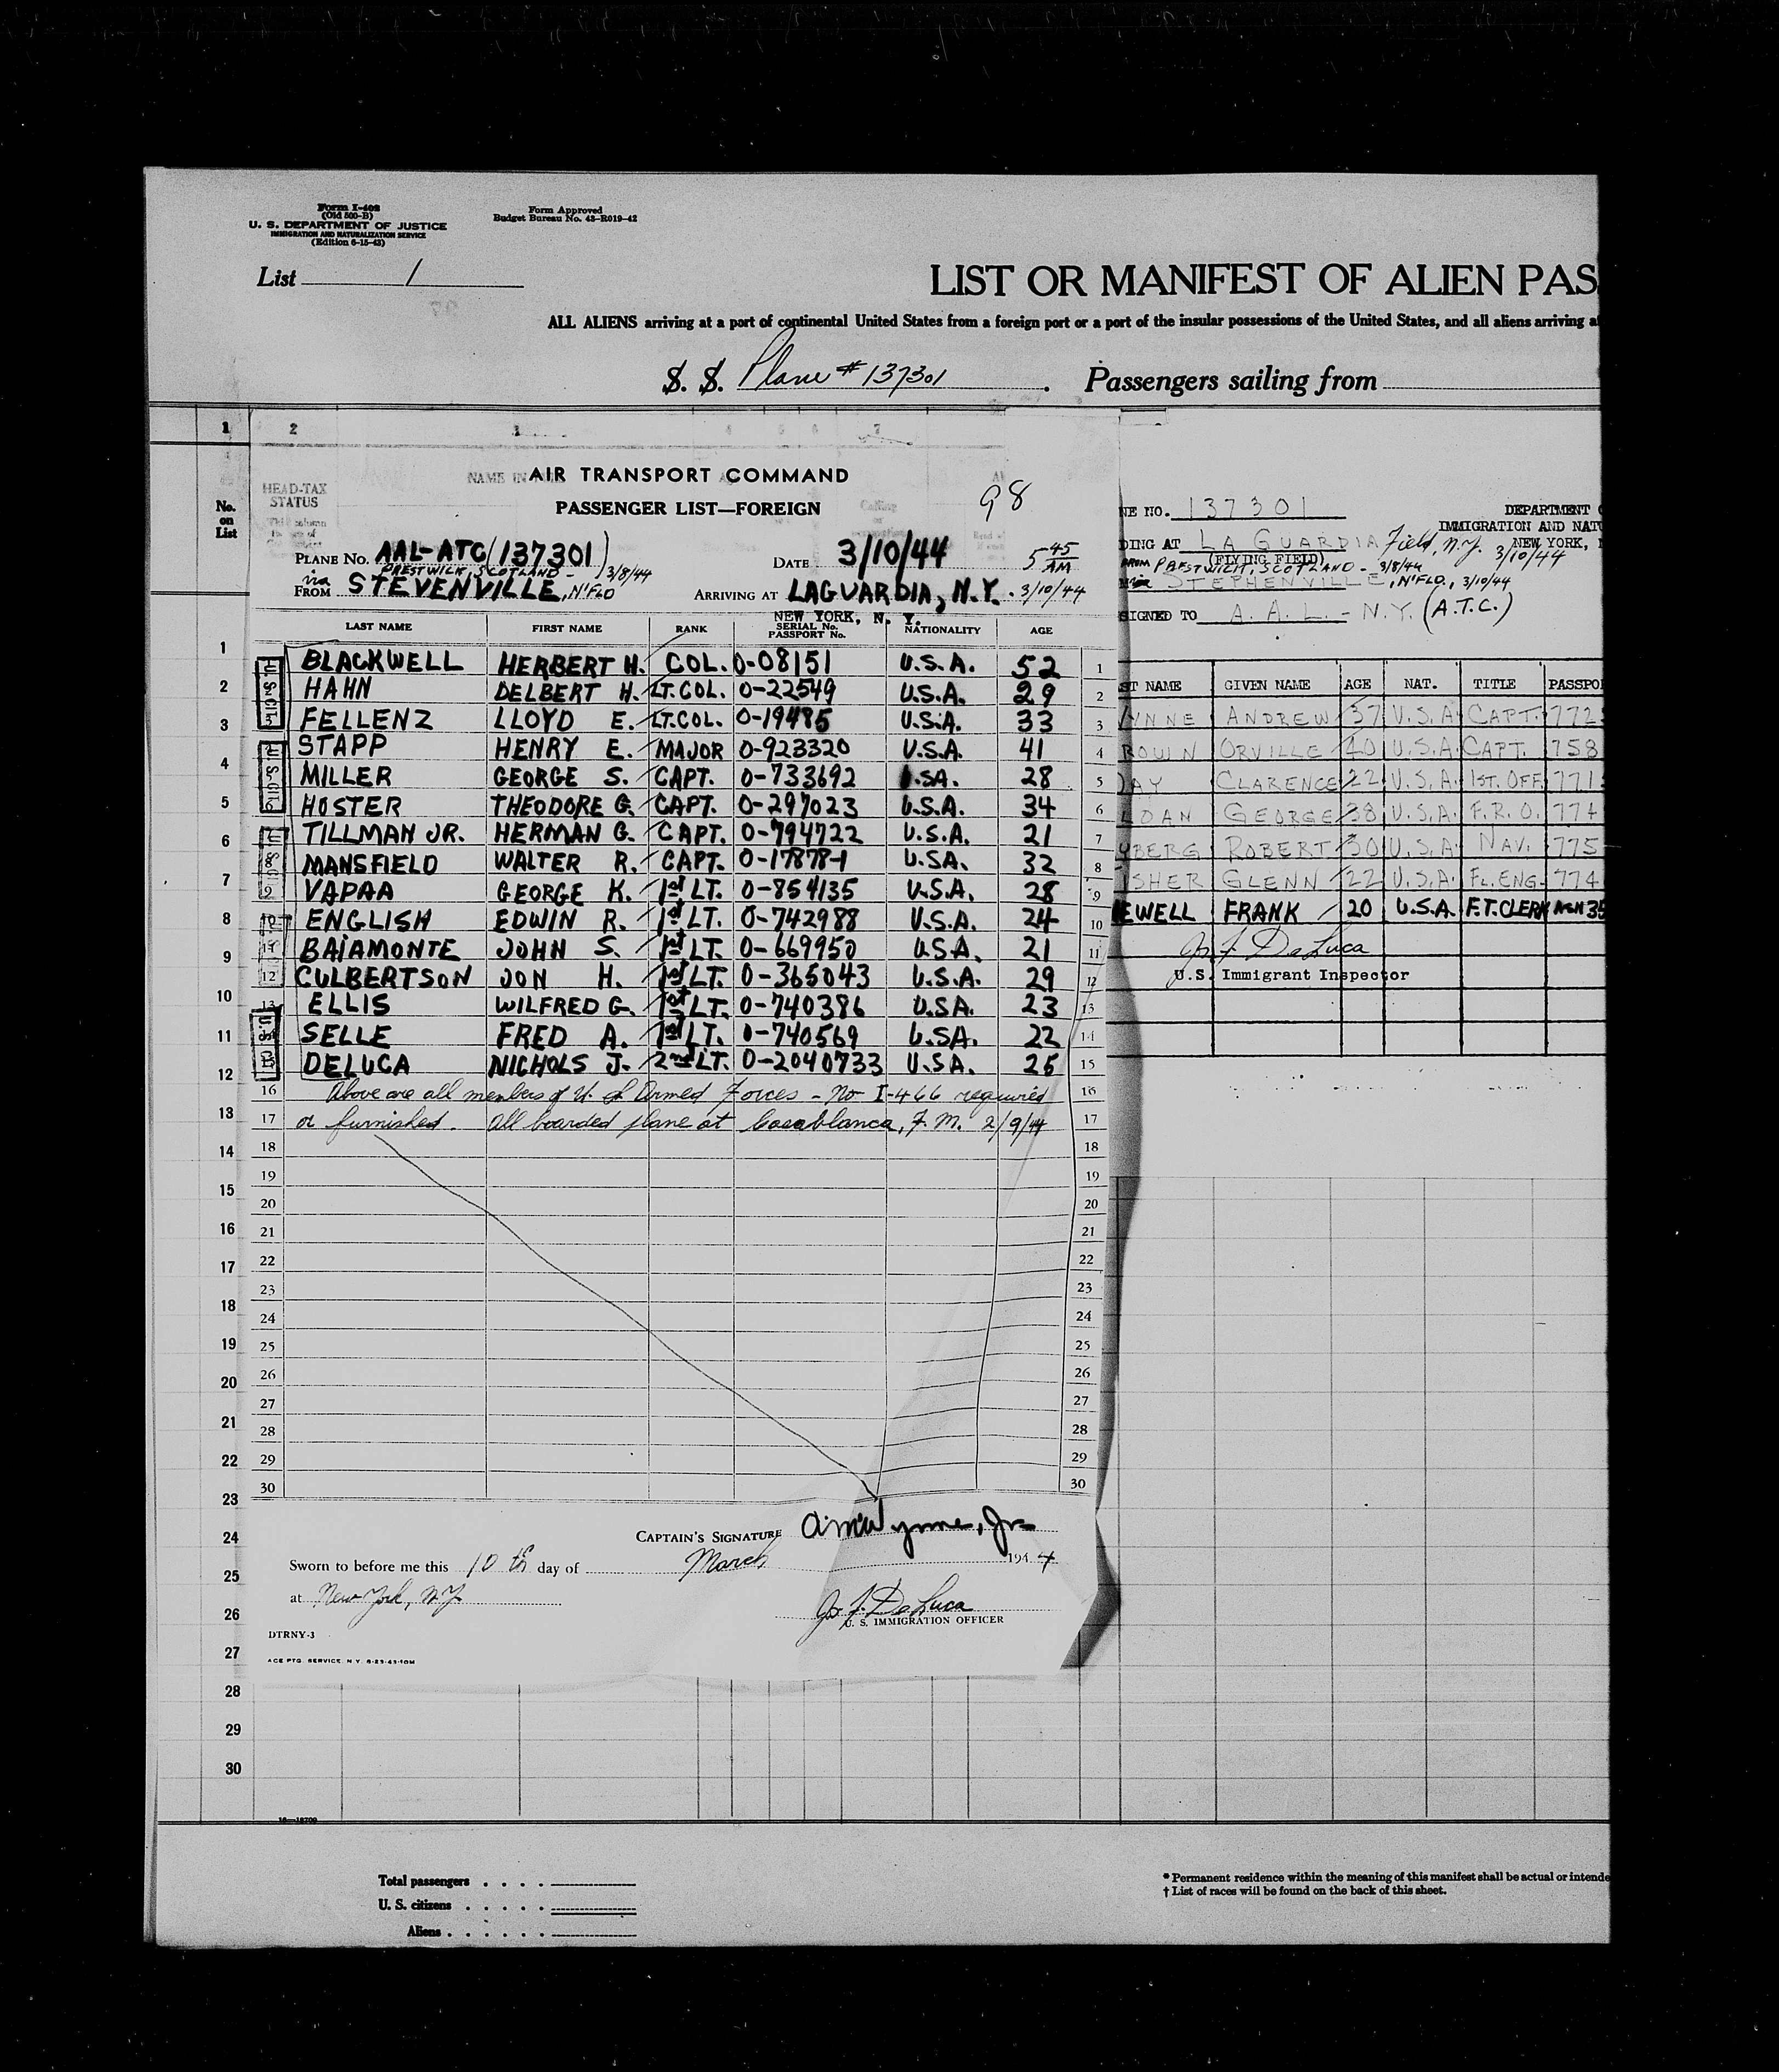 Form I-402
(Old 500-B)
U. S. DEPARTMENT OF JUSTICE
IMMIGRATION AND NATURALIZATION SERVICE
(Edition 6-15-43)
Form Approved
Budget Bureau No. 43-R019-42
List 1
LIST OR MANIFEST OF ALIEN PAS
ALL ALIENS arriving at a port of continental United States from a foreign port or a port of the insular possessions of the United States, and all aliens arriving a
S. S. Plane # 137301 . Passengers sailing from
1 2 3 4 5 6 7
No. on List
HEAD-TAX STATUS
NAME IN
AIR TRANSPORT COMMAND
PASSENGER LIST—FOREIGN
98
PLANE NO. AAL-ATC (137301) DATE 3/10/44 5 45 AM
PRESTWICK, SCOTLAND - 3/8/44
via
FROM STEVENVILLE, N'FLD ARRIVING AT LAGUARDIA, N.Y. - 3/10/44
NEW YORK, N. Y.
LAST NAME FIRST NAME RANK SERIAL No. PASSPORT No. NATIONALITY AGE
BLACKWELL HERBERT H. COL. O-08151 U.S.A. 52 1
HAHN DELBERT H. LT. COL. O-22549 U.S.A. 29 2
FELLENZ LLOYD E. LT. COL. O-19485 U.S.A. 33 3
STAPP HENRY E. MAJOR O-923320 U.S.A. 41 4
MILLER GEORGE S. CAPT. O-733692 U.S.A. 28 5
HOSTER THEODORE G. CAPT. O-297023 U.S.A. 34 6
TILLMAN JR. HERMAN G. CAPT. O-794722 U.S.A. 21 7
MANSFIELD WALTER R. CAPT. O-178784 U.S.A. 32 8
VAPAA GEORGE K. 1st LT. O-854135 U.S.A. 28 9
ENGLISH EDWIN R. 1st LT. O-742988 U.S.A. 24 10
BAIAMONTE JOHN S. 1st LT. O-669950 U.S.A. 21 11
CULBERTSON JON H. 1st LT. O-365043 U.S.A. 29 12
ELLIS WILFRED G. 1st LT. O-740386 U.S.A. 23 13
SELLE FRED A. 1st LT. O-740569 U.S.A. 22 14
DELUCA NICHOLS J. 2nd LT. O-2040733 U.S.A. 25 15
16 Above are all members of U. S. Armed Forces - No I-466 required 16
17 or furnished. All boarded plane at Casablanca, F. M. 2/9/44 17
18 18
19 19
20 20
21 21
22 22
23 23
24 24
25 25
26 26
27 27
28 28
29 29
30 30
CAPTAIN'S SIGNATURE A. M. Wynne, Jr.
Sworn to before me this 10th day of March 1944
at New York, N.Y.
Jos. F. DeLuca
U. S. IMMIGRATION OFFICER
DTRNY-3
ACE PTG. SERVICE, N.Y. 8-23-43-10M
1
2
3
4
5
6
7
8
9
10
11
12
13
14
15
16
17
18
19
20
21
22
23
24
25
26
27
28
29
30
NE NO. 137301
DEPARTMENT
IMMIGRATION AND NATU
NEW YORK,
DING AT LA GUARDIA Field, N.Y. 3/10/44
(FLYING FIELD)
FROM PRESTWICK, SCOTLAND - 3/8/44
via STEPHENVILLE, N'FLD., 3/10/44
SIGNED TO A. A. L. - N.Y. (A.T.C.)
ST NAME GIVEN NAME AGE NAT. TITLE PASSPO
YNNE ANDREW 37 U.S.A. CAPT. 772
ROWN ORVILLE 40 U.S.A. CAPT. 758
DAY CLARENCE 22 U.S.A. 1ST. OFF. 771
LOAN GEORGE 38 U.S.A. F.R.O. 774
YBERG ROBERT 30 U.S.A. NAV. 775
ISHER GLENN 22 U.S.A. FL. ENG. 774
EWELL FRANK 20 U.S.A. F.T. CLERK ASN 35
Jos. F. DeLuca
U.S. Immigrant Inspector
16—18700
Total passengers
U. S. citizens
Aliens
* Permanent residence within the meaning of this manifest shall be actual or intende
† List of races will be found on the back of this sheet.